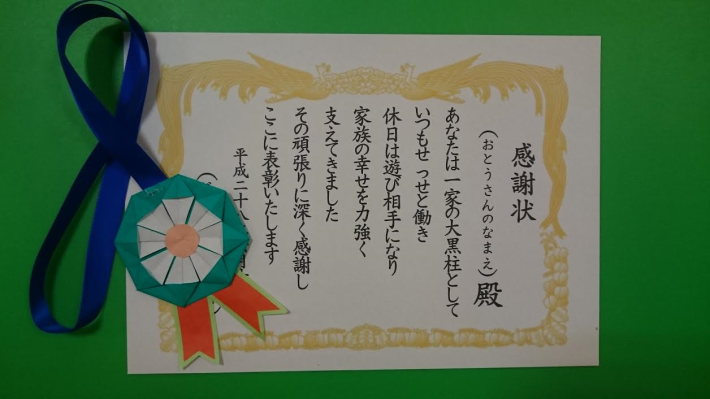 感謝状
(おとうさんのなまえ)殿
あなたは一家の大黒柱として
いつもせっせと働き
休日は遊び相手になり
家族の幸せを力強く
支えてきました
その頑張りに深く感謝し
ここに表彰いたします
平成二十八